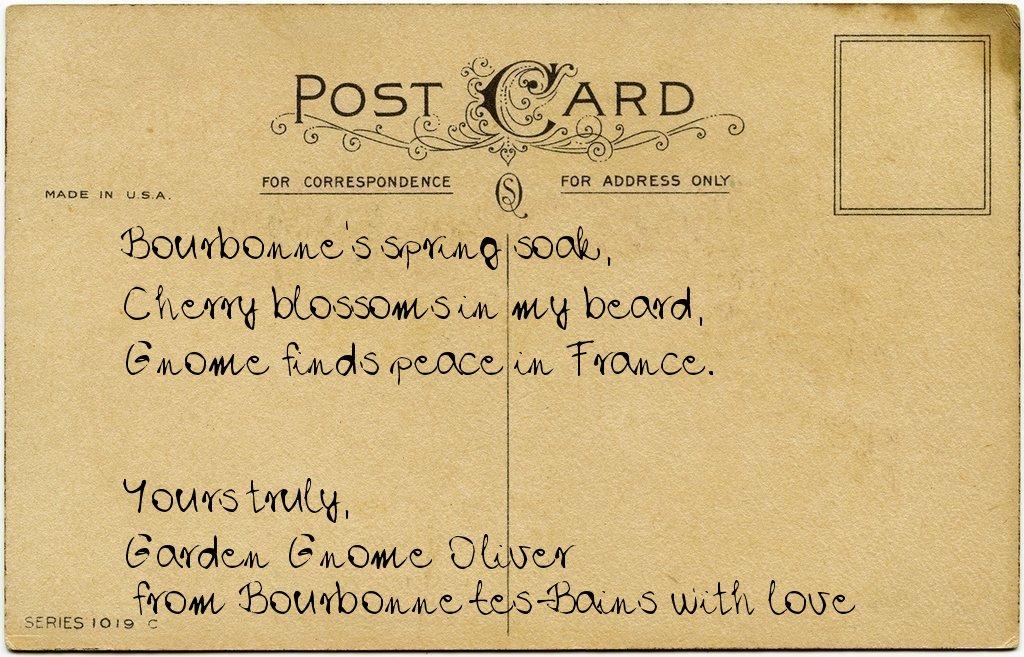 POST CARD
FOR CORRESPONDENCE
FOR ADDRESS ONLY
MADE IN U.S.A.
Bourbonne's spring soak,
Cherry blossoms in my beard,
Gnome finds peace in France.
Yours truly,
Garden Gnome Oliver
from Bourbonne-tes-Bains with love
SERIES 1019 C